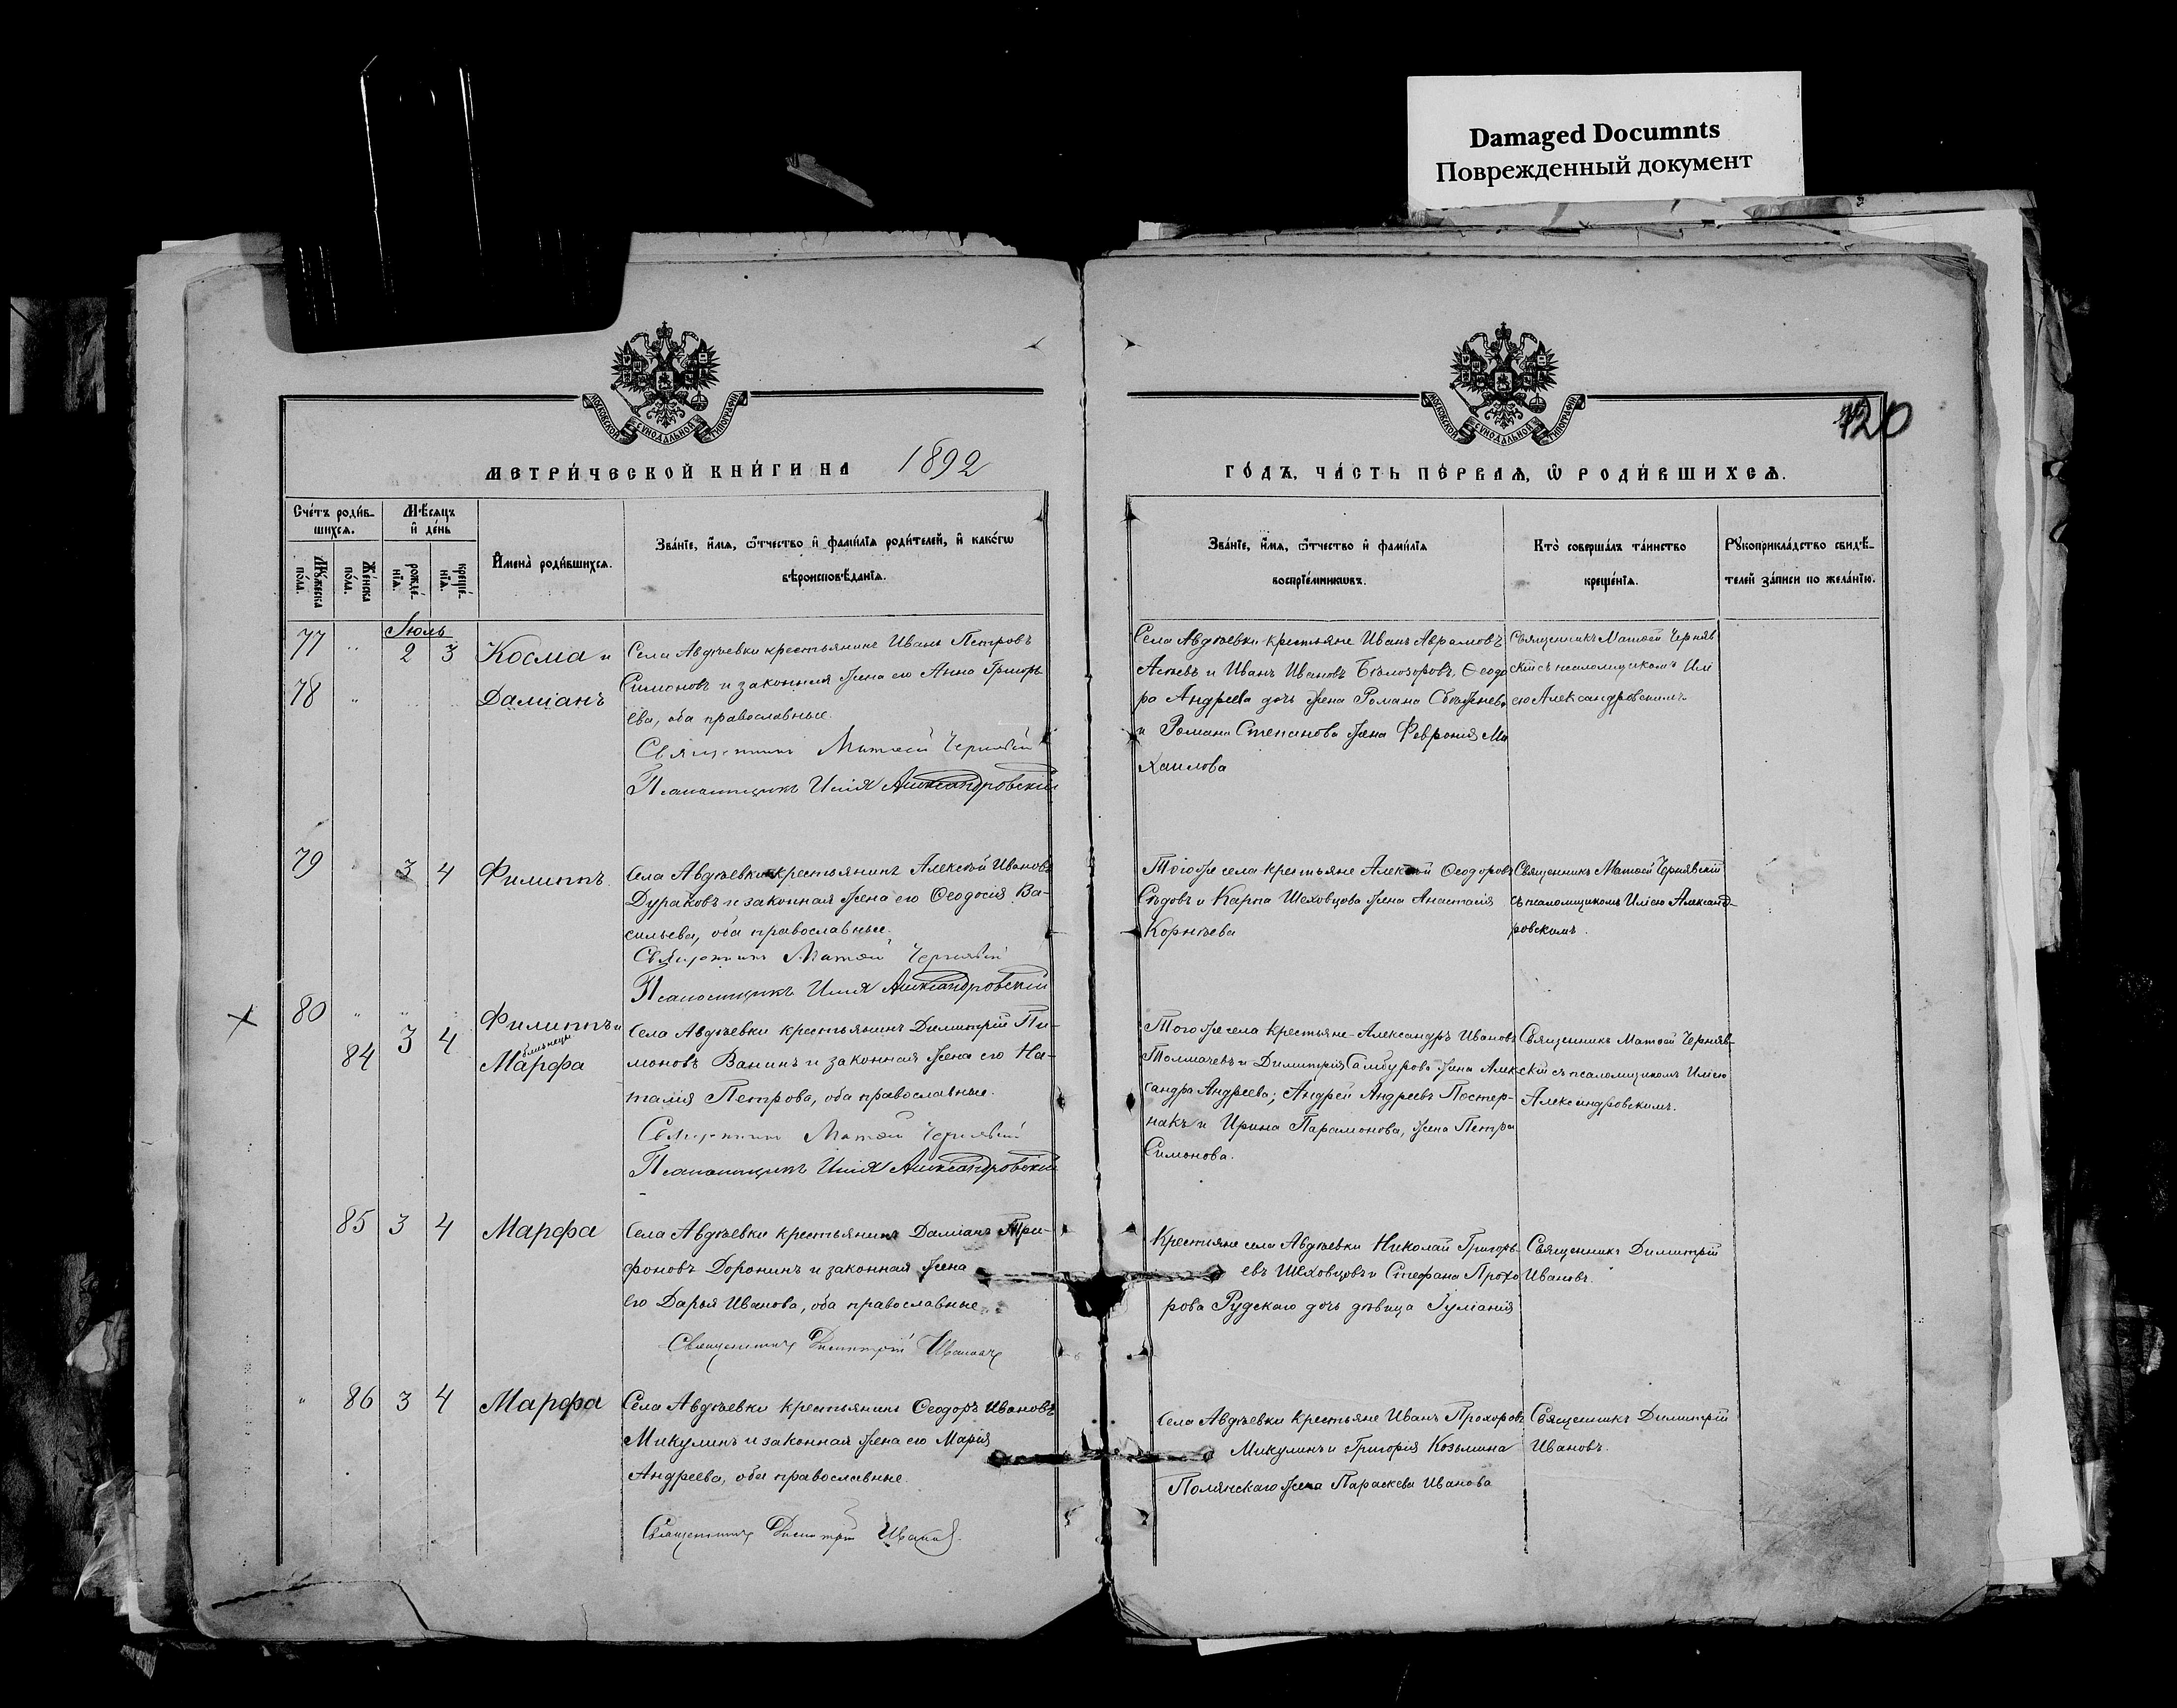 Damaged Documnts
Поврежденный документ
МОСКОВСКОЙ СѴНОДАЛЬНОЙ ТИПОГРАФІИ
МОСКОВСКОЙ СѴНОДАЛЬНОЙ ТИПОГРАФІИ
120
МЕТРИ́ЧЕСКОЙ КНИ́ГИ НА 1892
ГО́ДЪ, ЧА́СТЬ ПЕ́РВАЯ, Ѡ РОДИ́ВШИХСЯ.
Сче́тъ роди́в-
шихся.
Мѣсяцъ
и де́нь
Му́жеска
по́ла.
Же́нска
по́ла.
рожде́-
нїя.
креще́-
нїя.
Имена̀ роди́вшихся.
Зва́нїе, и́мя, ѻ҆́тчество и фами́лїя роди́телей, и како́гѡ
вѣроисповѣ́данїя.
Зва́нїе, и́мя, ѻ҆́тчество и фами́лїя
воспрїе́мникѡвъ.
Кто̀ соверша́лъ та́инство
креще́нїя.
Рукоприкла́дство свидѣ́-
телей за́писи по жела́нїю.
Іюль
77 " 2 3 Косма и
78 " Даміанъ
Села Авдѣевки крестьянинъ Иванъ Петровъ
Симоновъ и законная жена его Анна Григорь
ева, оба православные.
Священникъ Матѳей Чернявскій
Псаломщикъ Илія Александровскій
Села Авдѣевки крестьяне Иванъ Аврамовъ
и Иванъ Ивановъ Бѣлозоровъ, Ѳеодо
ра Андреева дочь жена Романа
и Романа Степанова жена Феврония Ми
хаилова
Священникъ Матѳей Чернявъ
скій съ псаломщикомъ Илі
ею Александровскимъ
79 " 3 4 Филиппъ
Села Авдѣевки крестьянинъ Алексѣй Ивановъ
Дураковъ и законная жена его Ѳеодосія Ва-
сильева, оба православные.
Священникъ Матѳей Чернявскій
Псаломщикъ Илія Александровскій
Того же села крестьяне Алексѣй Ѳеодоровъ
Сѣдовъ и Карпа Шеховцова жена Анастасія
Корнѣева
Священникъ Матѳей Чернявскій
съ псаломщикомъ Иліею Александ-
ровскимъ.
80 " " Филиппъ и
близнецы
84 3 4 Марфа
Села Авдѣевки крестьянинъ Димитрій Пи-
моновъ Ванинъ и законная жена его На-
талія Петрова, оба православные.
Священникъ Матѳей Чернявскій
Псаломщикъ Илія Александровскій
Того же села крестьяне Александръ Ивановъ
Толмачевъ и Димитрія Самбурова жена Алек
сандра Андреева; Андрей Андреевъ Постер-
накъ и Ирина Парамонова, жена Петра
Симонова.
Священникъ Матѳей Чернявъ-
скій съ псаломщикомъ Иліею
Александровскимъ.
85 3 4 Марфа
Села Авдѣевки крестьянинъ Даміанъ Три-
фоновъ Доронинъ и законная жена
его Дарья Иванова, оба православные.
Священникъ Димитрій Ивановъ
Крестьяне села Авдѣевки Николай Григорь-
евъ Шеховцовъ и Стефана Прохо
рова Рудскаго дочь дѣвица Іуліанія
Священникъ Димитрій
Ивановъ.
" 86 3 4 Марфа
Села Авдѣевки крестьянинъ Ѳеодоръ Ивановъ
Микулинъ и законная жена его Марія
Андреева, оба православные.
Священникъ Димитрій Ивановъ
Села Авдѣевки крестьяне Иванъ Прохоровъ
Микулинъ и Григорія Козьмина
Полянскаго жена Параскева Иванова
Священникъ Димитрій
Ивановъ.